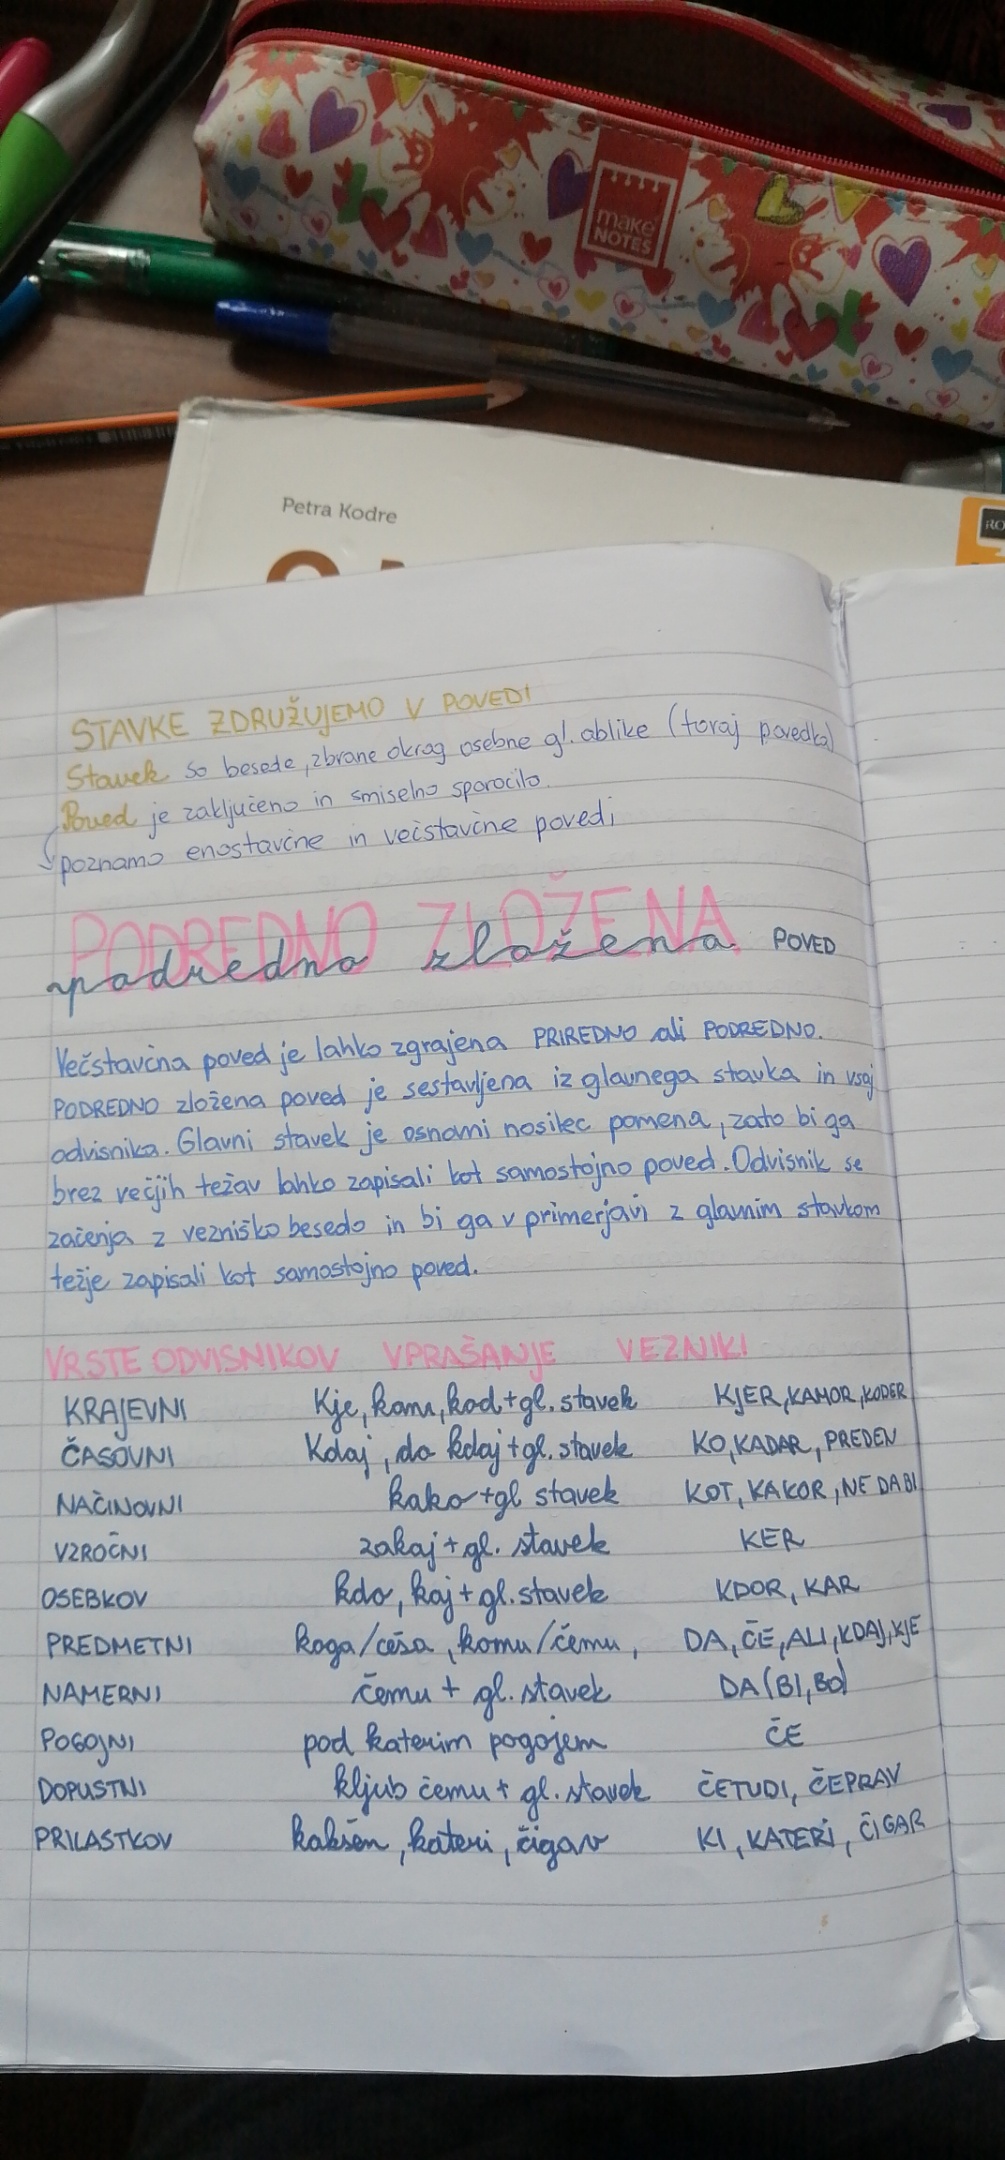 make
NOTES
Petra Kodre
RO
STAVKE ZDRUŽUJEMO V POVEDI
Stavek so besede, zbrane okrog osebne gl. oblike (toraj povedka)
Poved je zaključeno in smiselno sporocilo.
poznamo enostavčne in večstavčne povedi
PODREDNO ZLOŽENA
podredno zložena POVED
Večstavčna poved je lahko zgrajena PRIREDNO ali PODREDNO.
PODREDNO zložena poved je sestavljena iz glavnega stavka in vsaj
odvisnika. Glavni stavek je osnovni nosilec pomena, zato bi ga
brez večjih težav lahko zapisali kot samostojno poved. Odvisnik se
začenja z vezniško besedo in bi ga v primerjavi z glavnim stavkom
težje zapisali kot samostojno poved.
VRSTE ODVISNIKOV VPRAŠANJE VEZNIKI
KRAJEVNI Kje, kam, kod + gl. stavek KJER, KAMOR, KODER
ČASOVNI Kdaj, do kdaj + gl. stavek KO, KADAR, PREDEN
NAČINOVNI kako + gl stavek KOT, KAKOR, NE DA BI
VZROČNI zakaj + gl. stavek KER
OSEBKOV kdo, kaj + gl. stavek KDOR, KAR
PREDMETNI koga/česa, komu/čemu, DA, ČE, ALI, KDAJ, KJE
NAMERNI čemu + gl. stavek DA (BI, BO)
POGOJNI pod katerim pogojem ČE
DOPUSTNI kljub čemu + gl. stavek ČETUDI, ČEPRAV
PRILASTKOV kakšen, kateri, čigav KI, KATERI, ČIGAR